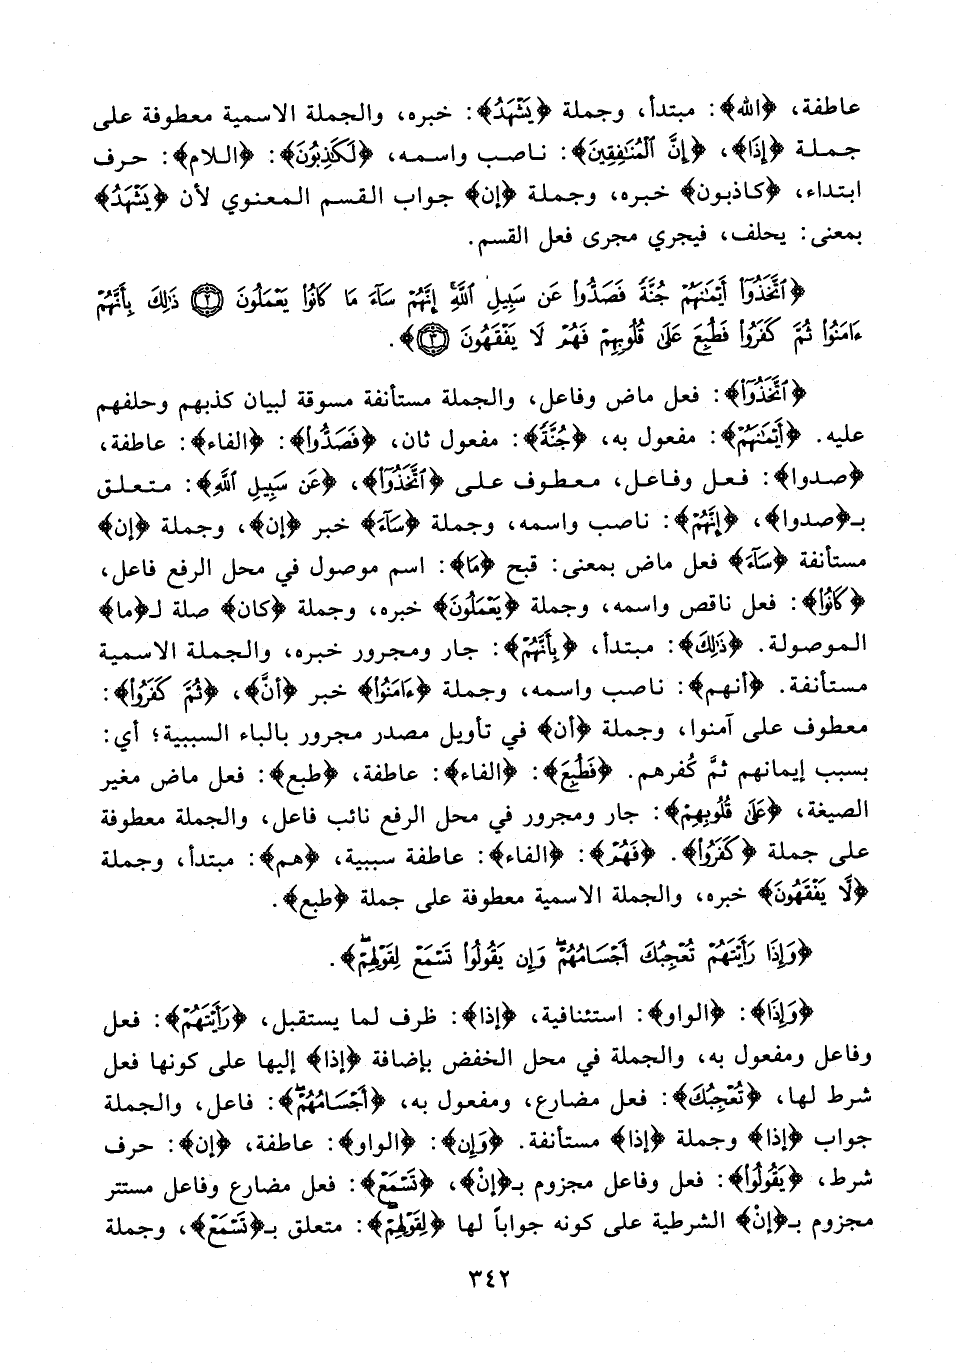 عاطفة، ﴿الله﴾: مبتدأ، وجملة ﴿يَشْهَدُ﴾: خبره، والجملة الاسمية معطوفة على
جملة ﴿إِذَا﴾، ﴿إِنَّ ٱلْمُنَٰفِقِينَ﴾: ناصب واسمه، ﴿لَكَٰذِبُونَ﴾: ﴿اللام﴾: حرف
ابتداء، ﴿كاذبون﴾ خبره، وجملة ﴿إن﴾ جواب القسم المعنوي لأن ﴿يَشْهَدُ﴾
بمعنى: يحلف، فيجري مجرى فعل القسم.
﴿ٱتَّخَذُوٓا۟ أَيْمَٰنَهُمْ جُنَّةً فَصَدُّوا۟ عَن سَبِيلِ ٱللَّهِ ۚ إِنَّهُمْ سَآءَ مَا كَانُوا۟ يَعْمَلُونَ ۝٢ ذَٰلِكَ بِأَنَّهُمْ
ءَامَنُوا۟ ثُمَّ كَفَرُوا۟ فَطُبِعَ عَلَىٰ قُلُوبِهِمْ فَهُمْ لَا يَفْقَهُونَ ۝٣﴾.
﴿ٱتَّخَذُوٓا۟﴾: فعل ماض وفاعل، والجملة مستأنفة مسوقة لبيان كذبهم وحلفهم
عليه. ﴿أَيْمَٰنَهُمْ﴾: مفعول به، ﴿جُنَّةً﴾: مفعول ثان، ﴿فَصَدُّوا۟﴾: ﴿الفاء﴾: عاطفة،
﴿صدوا﴾: فعل وفاعل، معطوف على ﴿ٱتَّخَذُوٓا۟﴾، ﴿عَن سَبِيلِ ٱللَّهِ﴾: متعلق
بـ﴿صدوا﴾، ﴿إِنَّهُمْ﴾: ناصب واسمه، وجملة ﴿سَآءَ﴾ خبر ﴿إن﴾، وجملة ﴿إن﴾
مستأنفة ﴿سَآءَ﴾ فعل ماض بمعنى: قبح ﴿مَا﴾: اسم موصول في محل الرفع فاعل،
﴿كَانُوا۟﴾: فعل ناقص واسمه، وجملة ﴿يَعْمَلُونَ﴾ خبره، وجملة ﴿كان﴾ صلة لـ﴿ما﴾
الموصولة. ﴿ذَٰلِكَ﴾: مبتدأ، ﴿بِأَنَّهُمْ﴾: جار ومجرور خبره، والجملة الاسمية
مستأنفة. ﴿أنهم﴾: ناصب واسمه، وجملة ﴿ءَامَنُوا۟﴾ خبر ﴿أنَّ﴾، ﴿ثُمَّ كَفَرُوا۟﴾:
معطوف على آمنوا، وجملة ﴿أن﴾ في تأويل مصدر مجرور بالباء السببية؛ أي:
بسبب إيمانهم ثمَّ كُفرهم. ﴿فَطُبِعَ﴾: ﴿الفاء﴾: عاطفة، ﴿طبع﴾: فعل ماض مغير
الصيغة، ﴿عَلَىٰ قُلُوبِهِمْ﴾: جار ومجرور في محل الرفع نائب فاعل، والجملة معطوفة
على جملة ﴿كَفَرُوا۟﴾. ﴿فَهُمْ﴾: ﴿الفاء﴾: عاطفة سببية، ﴿هم﴾: مبتدأ، وجملة
﴿لَا يَفْقَهُونَ﴾ خبره، والجملة الاسمية معطوفة على جملة ﴿طبع﴾.
﴿وَإِذَا رَأَيْتَهُمْ تُعْجِبُكَ أَجْسَامُهُمْ ۖ وَإِن يَقُولُوا۟ تَسْمَعْ لِقَوْلِهِمْ ۖ﴾.
﴿وَإِذَا﴾: ﴿الواو﴾: استئنافية، ﴿إذا﴾: ظرف لما يستقبل، ﴿رَأَيْتَهُمْ﴾: فعل
وفاعل ومفعول به، والجملة في محل الخفض بإضافة ﴿إذا﴾ إليها على كونها فعل
شرط لها، ﴿تُعْجِبُكَ﴾: فعل مضارع، ومفعول به، ﴿أَجْسَامُهُمْ ۖ﴾: فاعل، والجملة
جواب ﴿إذا﴾ وجملة ﴿إذا﴾ مستأنفة. ﴿وَإِن﴾: ﴿الواو﴾: عاطفة، ﴿إن﴾: حرف
شرط، ﴿يَقُولُوا۟﴾: فعل وفاعل مجزوم بـ﴿إنْ﴾، ﴿تَسْمَعْ﴾: فعل مضارع وفاعل مستتر
مجزوم بـ﴿إنْ﴾ الشرطية على كونه جواباً لها ﴿لِقَوْلِهِمْ ۖ﴾: متعلق بـ﴿تَسْمَعْ﴾، وجملة
٣٤٢